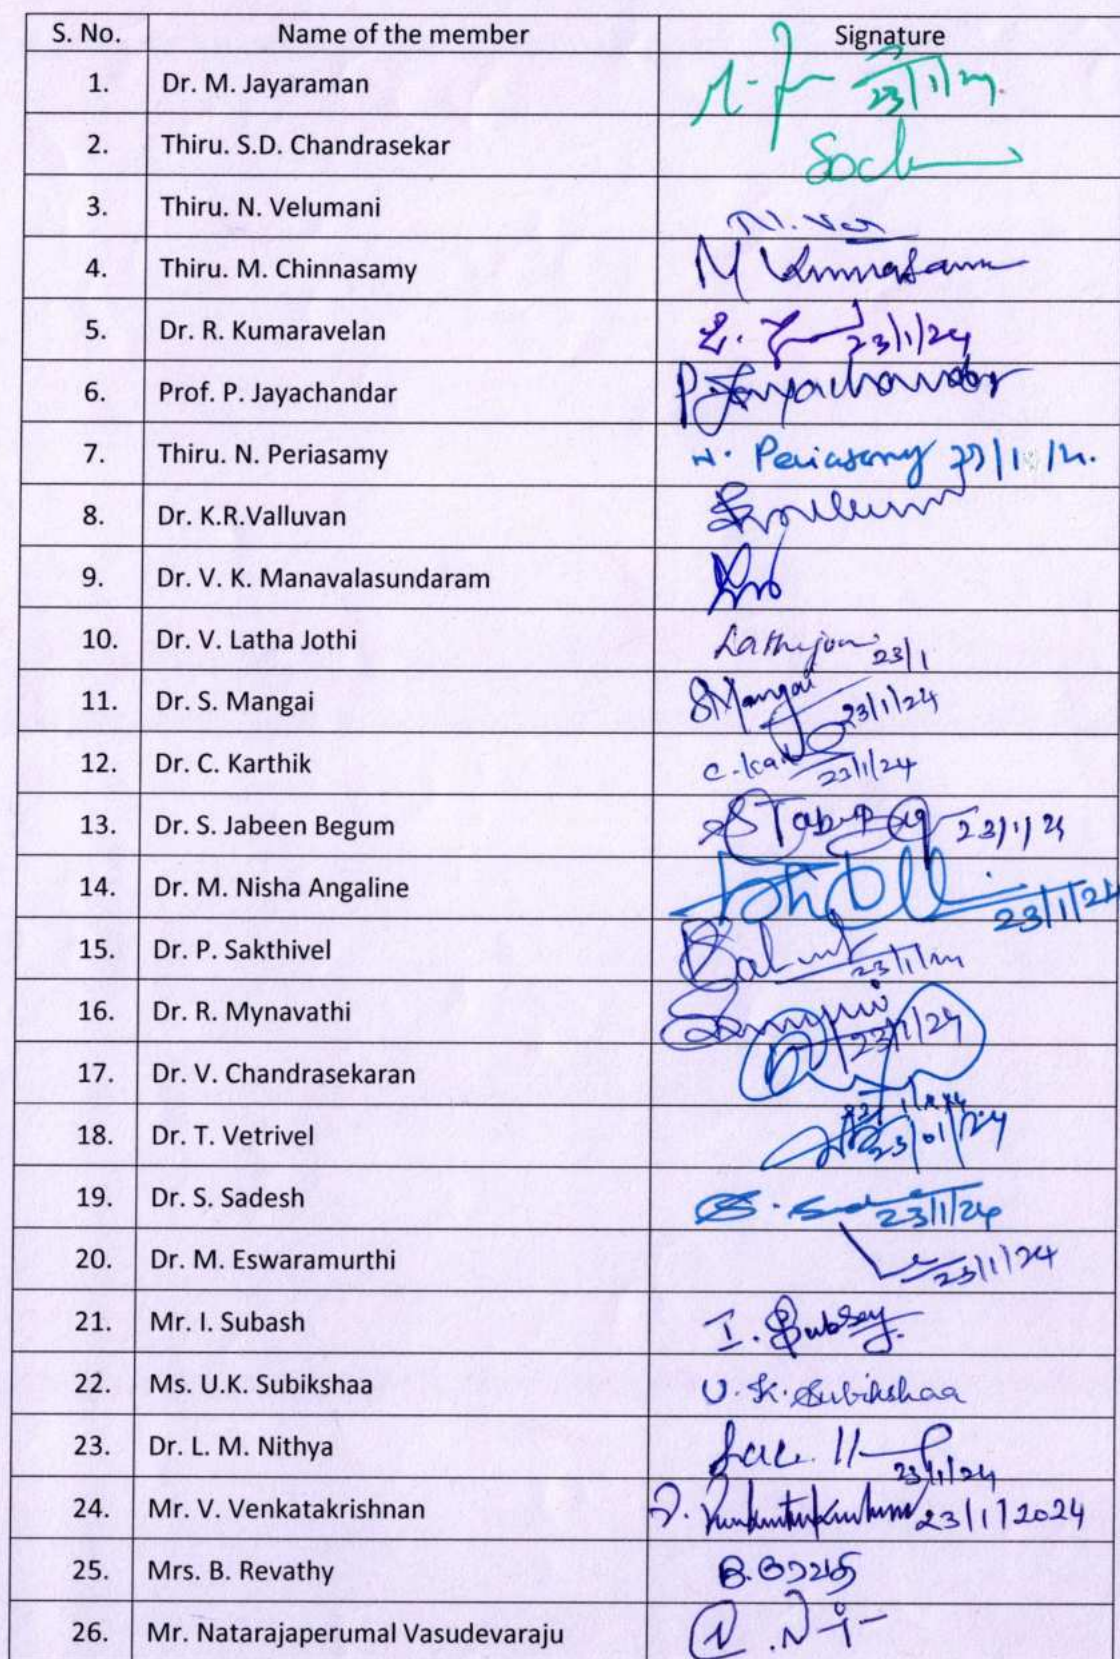 S. No. Name of the member Signature
1. Dr. M. Jayaraman 23/1/24
2. Thiru. S.D. Chandrasekar
3. Thiru. N. Velumani N. Vel
4. Thiru. M. Chinnasamy M
5. Dr. R. Kumaravelan 23/1/24
6. Prof. P. Jayachandar P. Jayachandar
7. Thiru. N. Periasamy N. Periasamy
8. Dr. K.R.Valluvan
9. Dr. V. K. Manavalasundaram
10. Dr. V. Latha Jothi 23/1
11. Dr. S. Mangai S Mangai 23/1/24
12. Dr. C. Karthik C. Kar 23/1/24
13. Dr. S. Jabeen Begum 23/1/24
14. Dr. M. Nisha Angaline 23/1/24
15. Dr. P. Sakthivel 23/1/24
16. Dr. R. Mynavathi 23/1/24
17. Dr. V. Chandrasekaran
18. Dr. T. Vetrivel 23/01/24
19. Dr. S. Sadesh 23/1/24
20. Dr. M. Eswaramurthi 23/1/24
21. Mr. I. Subash I.
22. Ms. U.K. Subikshaa U. K. Subikshaa
23. Dr. L. M. Nithya 23/1/24
24. Mr. V. Venkatakrishnan 23/1/2024
25. Mrs. B. Revathy B. ரேவதி
26. Mr. Natarajaperumal Vasudevaraju